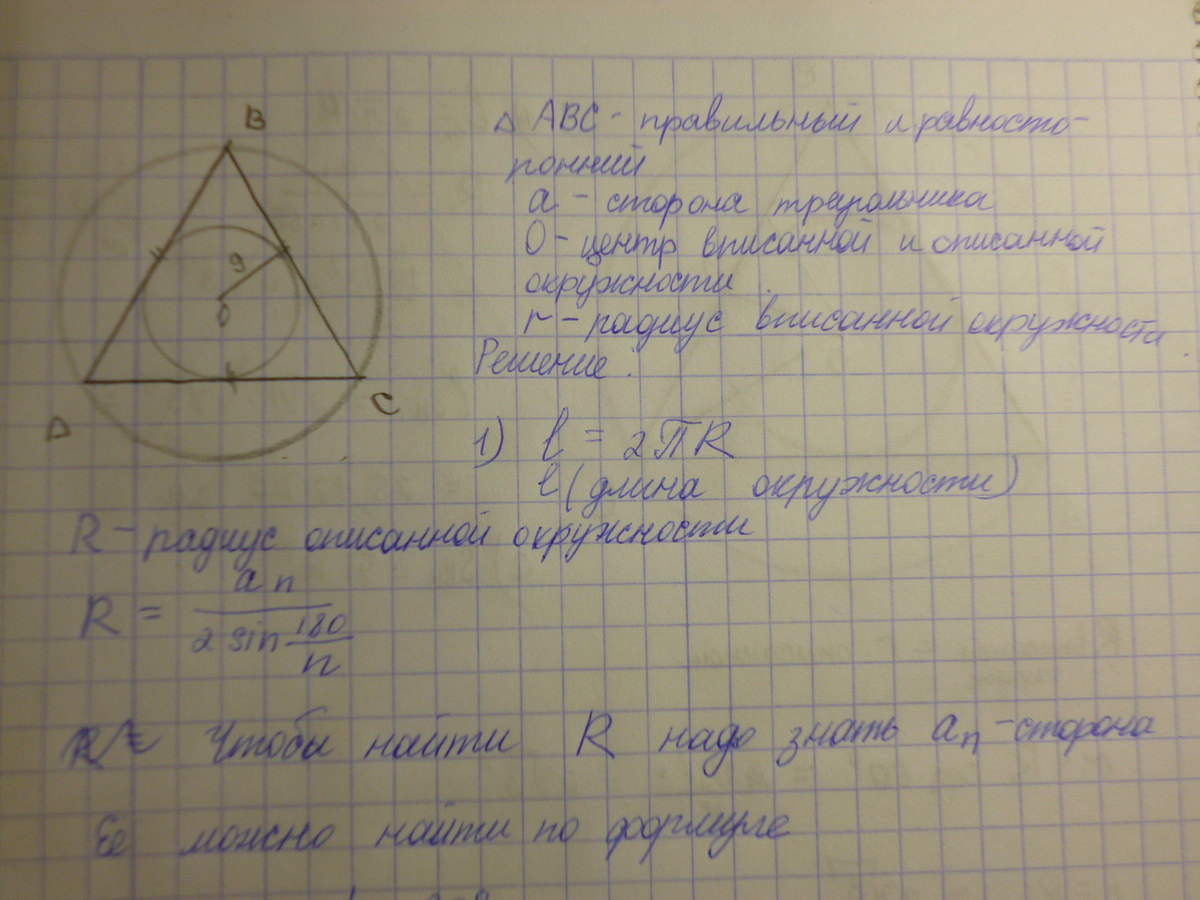 B
9
O
C
△ ABC - правильный и равносто-
ронний
a - сторона треугольника
O - центр вписанной и описанной
окружности
r - радиус вписанной окружности.
Решение:
1) l = 2πR
l (длина окружности)
R - радиус описанной окружности
R = aₙ / (2 sin 180/n)
Чтобы найти R надо знать aₙ - сторона
Её можно найти по формуле